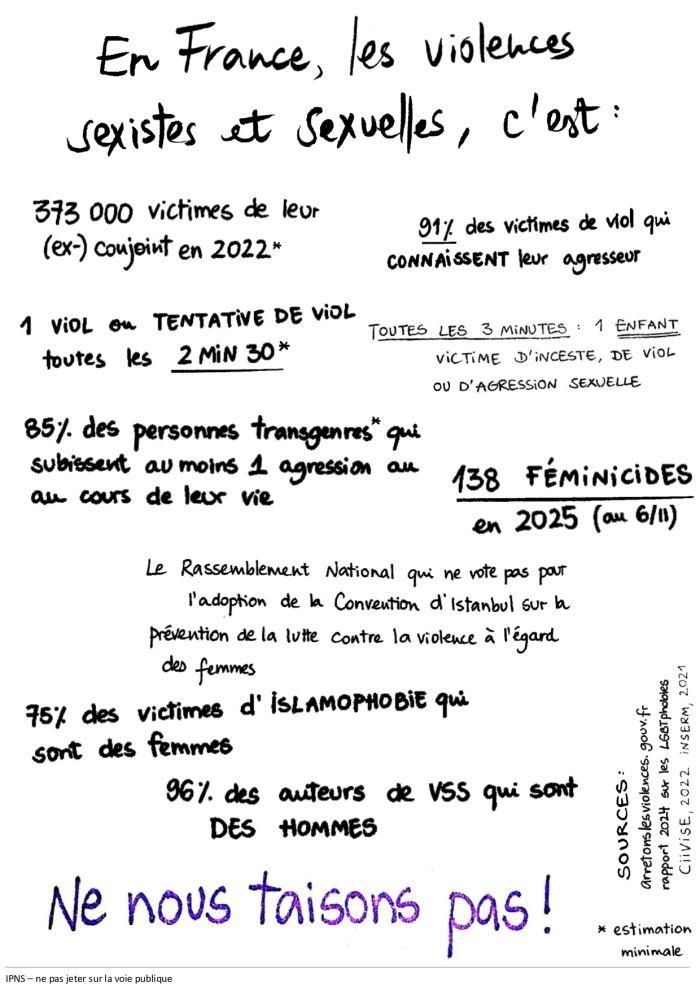 En France, les violences
sexistes et sexuelles, c'est :
373 000 victimes de leur
(ex-) conjoint en 2022*
91% des victimes de viol qui
CONNAISSENT leur agresseur
1 VIOL ou TENTATIVE DE VIOL
toutes les 2 MIN 30*
TOUTES LES 3 MINUTES : 1 ENFANT
VICTIME D'INCESTE, DE VIOL
OU D'AGRESSION SEXUELLE
85% des personnes transgenres* qui
subissent au moins 1 agression au
au cours de leur vie
138 FÉMINICIDES
en 2025 (au 6/11)
Le Rassemblement National qui ne vote pas pour
l'adoption de la Convention d'Istanbul sur la
prévention de la lutte contre la violence à l'égard
des femmes
75% des victimes d'ISLAMOPHOBIE qui
sont des femmes
96% des auteurs de VSS qui sont
DES HOMMES
SOURCES :
arretonslesviolences.gouv.fr
rapport 2024 sur les LGBTphobies
CiiViSE, 2022 iNSERM, 2021
Ne nous taisons pas !
* estimation
minimale
IPNS – ne pas jeter sur la voie publique